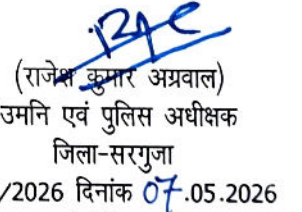 (राजेश कुमार अग्रवाल)
उमनि एवं पुलिस अधीक्षक
जिला-सरगुजा
/2026 दिनांक 07.05.2026